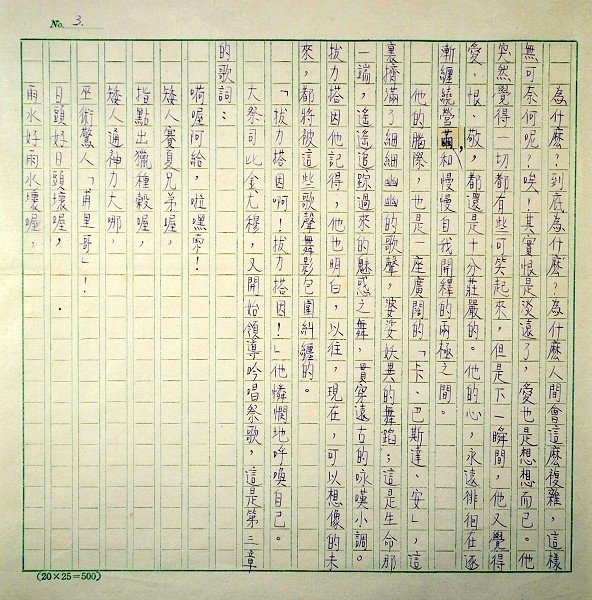 No. 3.
為什麽？到底為什麽？為什麽人間會這麽複雜，這樣
無可奈何呢？唉！其實恨是淡遠了，愛也是想想而已。他
突然覺得一切都有些可笑起來，但是下一瞬間，他又覺得
愛、恨、敬，都還是十分莊嚴的。他的心，永遠徘徊在逐
漸纏繞營繭，和慢慢自我開繹的兩極之間。
他的腦際，也是一座廣闊的「卡、巴斯達、安」，這
裏擠滿了細細幽幽的歌聲，婆娑妖異的舞蹈；這是生命那
一端，遙遙追踪過來的魅惑之舞，貫穿遠古的咏嘆小調。
拔力搭因他記得，他也明白，以往，現在，可以想像的未
來，都將被這些歌聲舞影包圍糾纏的。
「拔力搭因啊！拔力搭因！」他憐憫地呼喚自己。
大祭司比金尤穆，又開始領導吟唱祭歌，這是第三章
的歌詞：
嗬喔阿給，啦嘿奈！
矮人賽夏兄弟喔，
指點出獵種穀喔，
矮人通神力大哪，
巫術驚人「甫里哥」！
日頭好日頭壞喔，
雨水好雨水壞喔，
(20×25=500)